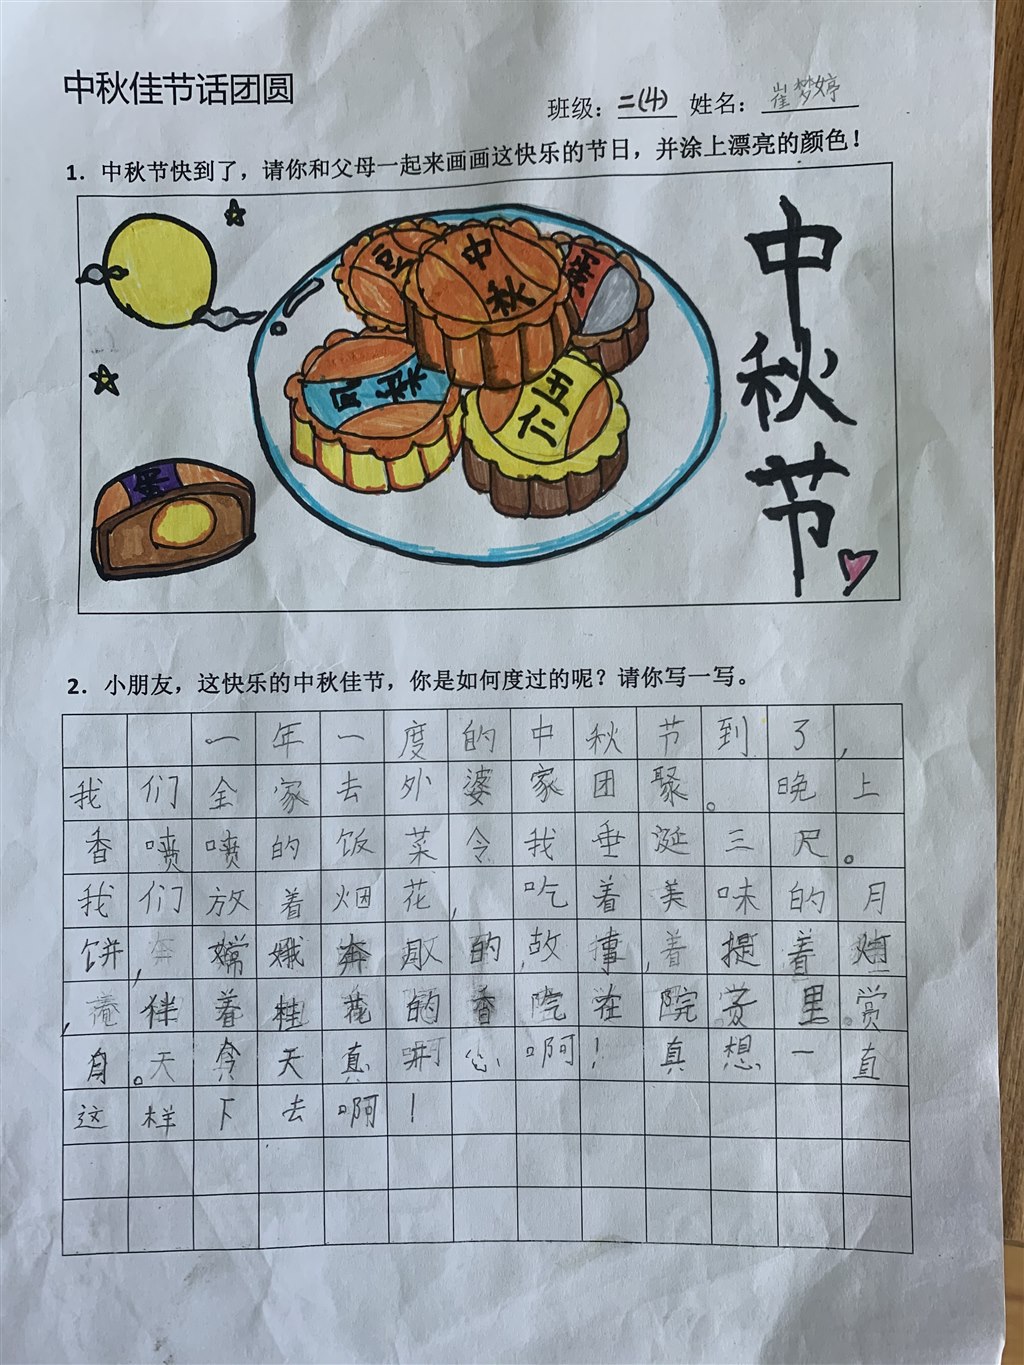 中秋佳节话团圆
班级：二(4) 姓名：崔梦婷
1. 中秋节快到了，请你和父母一起来画画这快乐的节日，并涂上漂亮的颜色！
豆
中秋
蛋
凤
五仁
蛋
中秋节
2. 小朋友，这快乐的中秋佳节，你是如何度过的呢？请你写一写。
一年一度的中秋节到了，
我们全家去外婆家团聚。晚上
香喷喷的饭菜令我垂涎三尺。
我们放着烟花，吃着美味的月
饼，嫦娥奔的故事，着提着
，伴着桂花的香在院里赏
月。今天真开心啊！真想一直
这样下去啊！